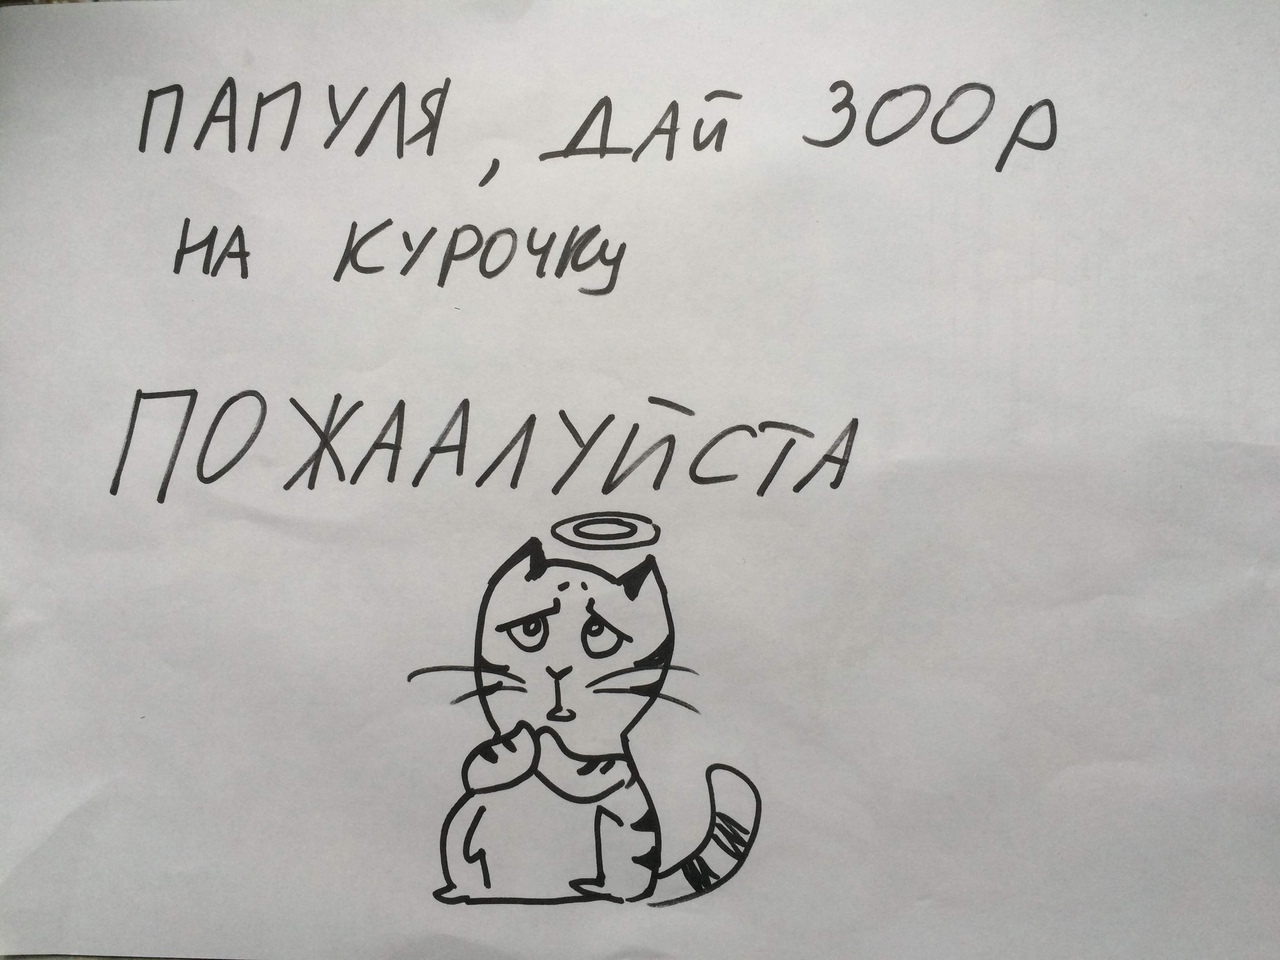 ПАПУЛЯ, ДАЙ 300р
НА КУРОЧКУ
ПОЖААЛУЙСТА